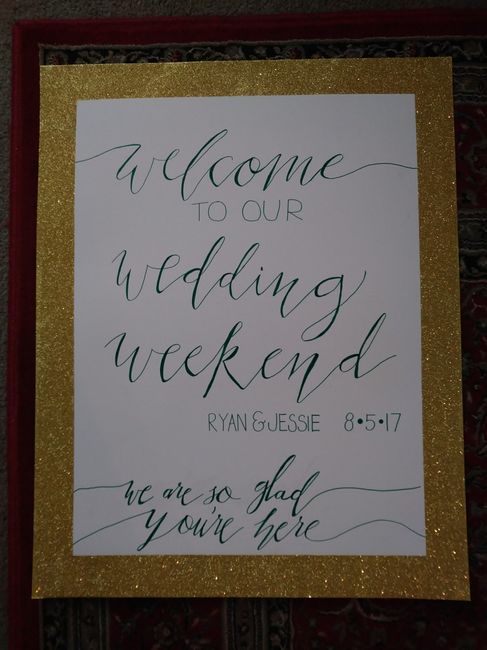 welcome
TO OUR
wedding
weekend
RYAN & JESSIE 8•5•17
we are so glad
you're here